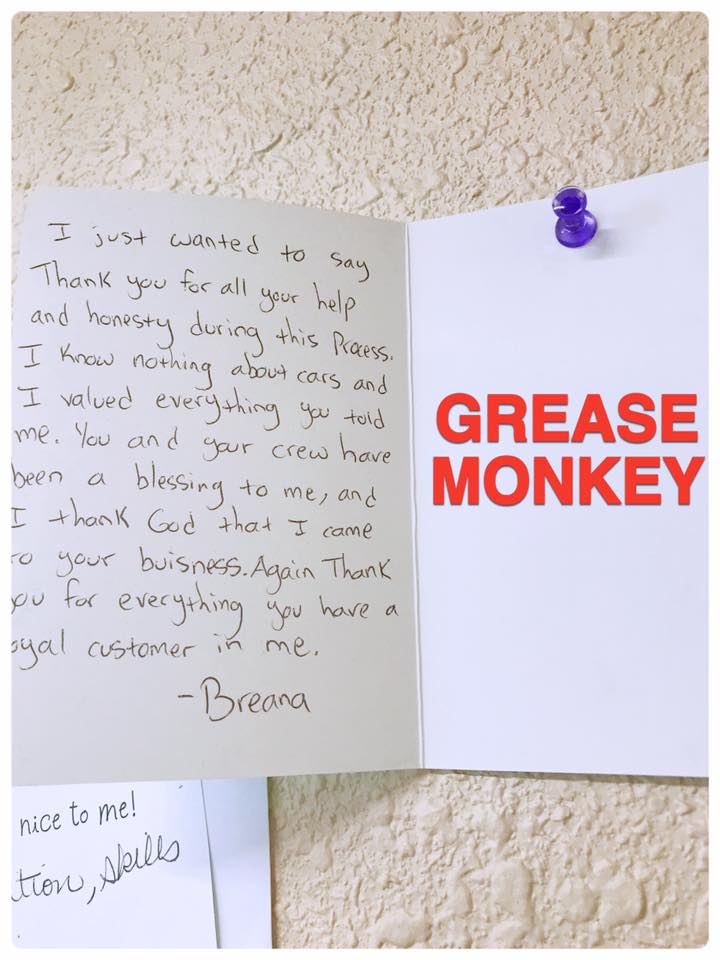 I just wanted to say
Thank you for all your help
and honesty during this Process.
I Know nothing about cars and
I valued everything you told
me. You and your crew have
been a blessing to me, and
I thank God that I came
to your buisness. Again Thank
you for everything you have a
loyal customer in me.
-Breana
GREASE
MONKEY
nice to me!
tion, skills